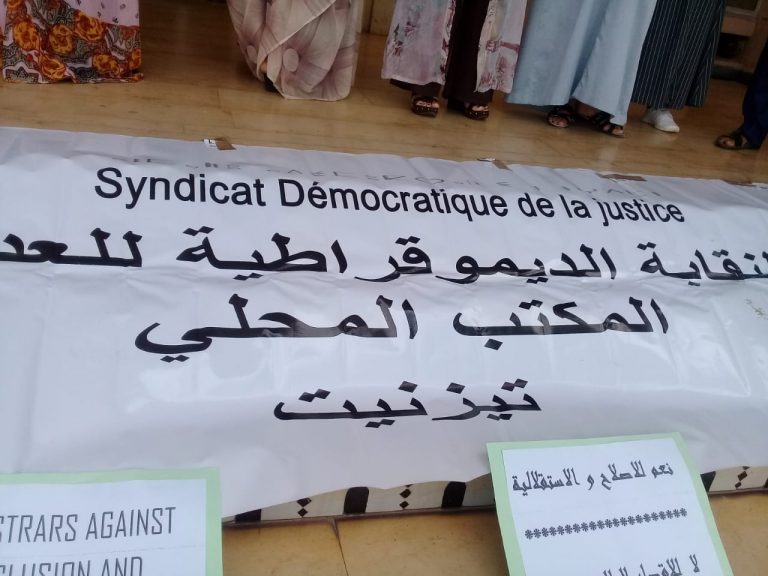 Syndicat Démocratique de la justice
الديموقراطية
المكتب المحلي
تيزنيت
AGAINST
AND
نعم للاصلاح و الاستقلالية
********************
لا